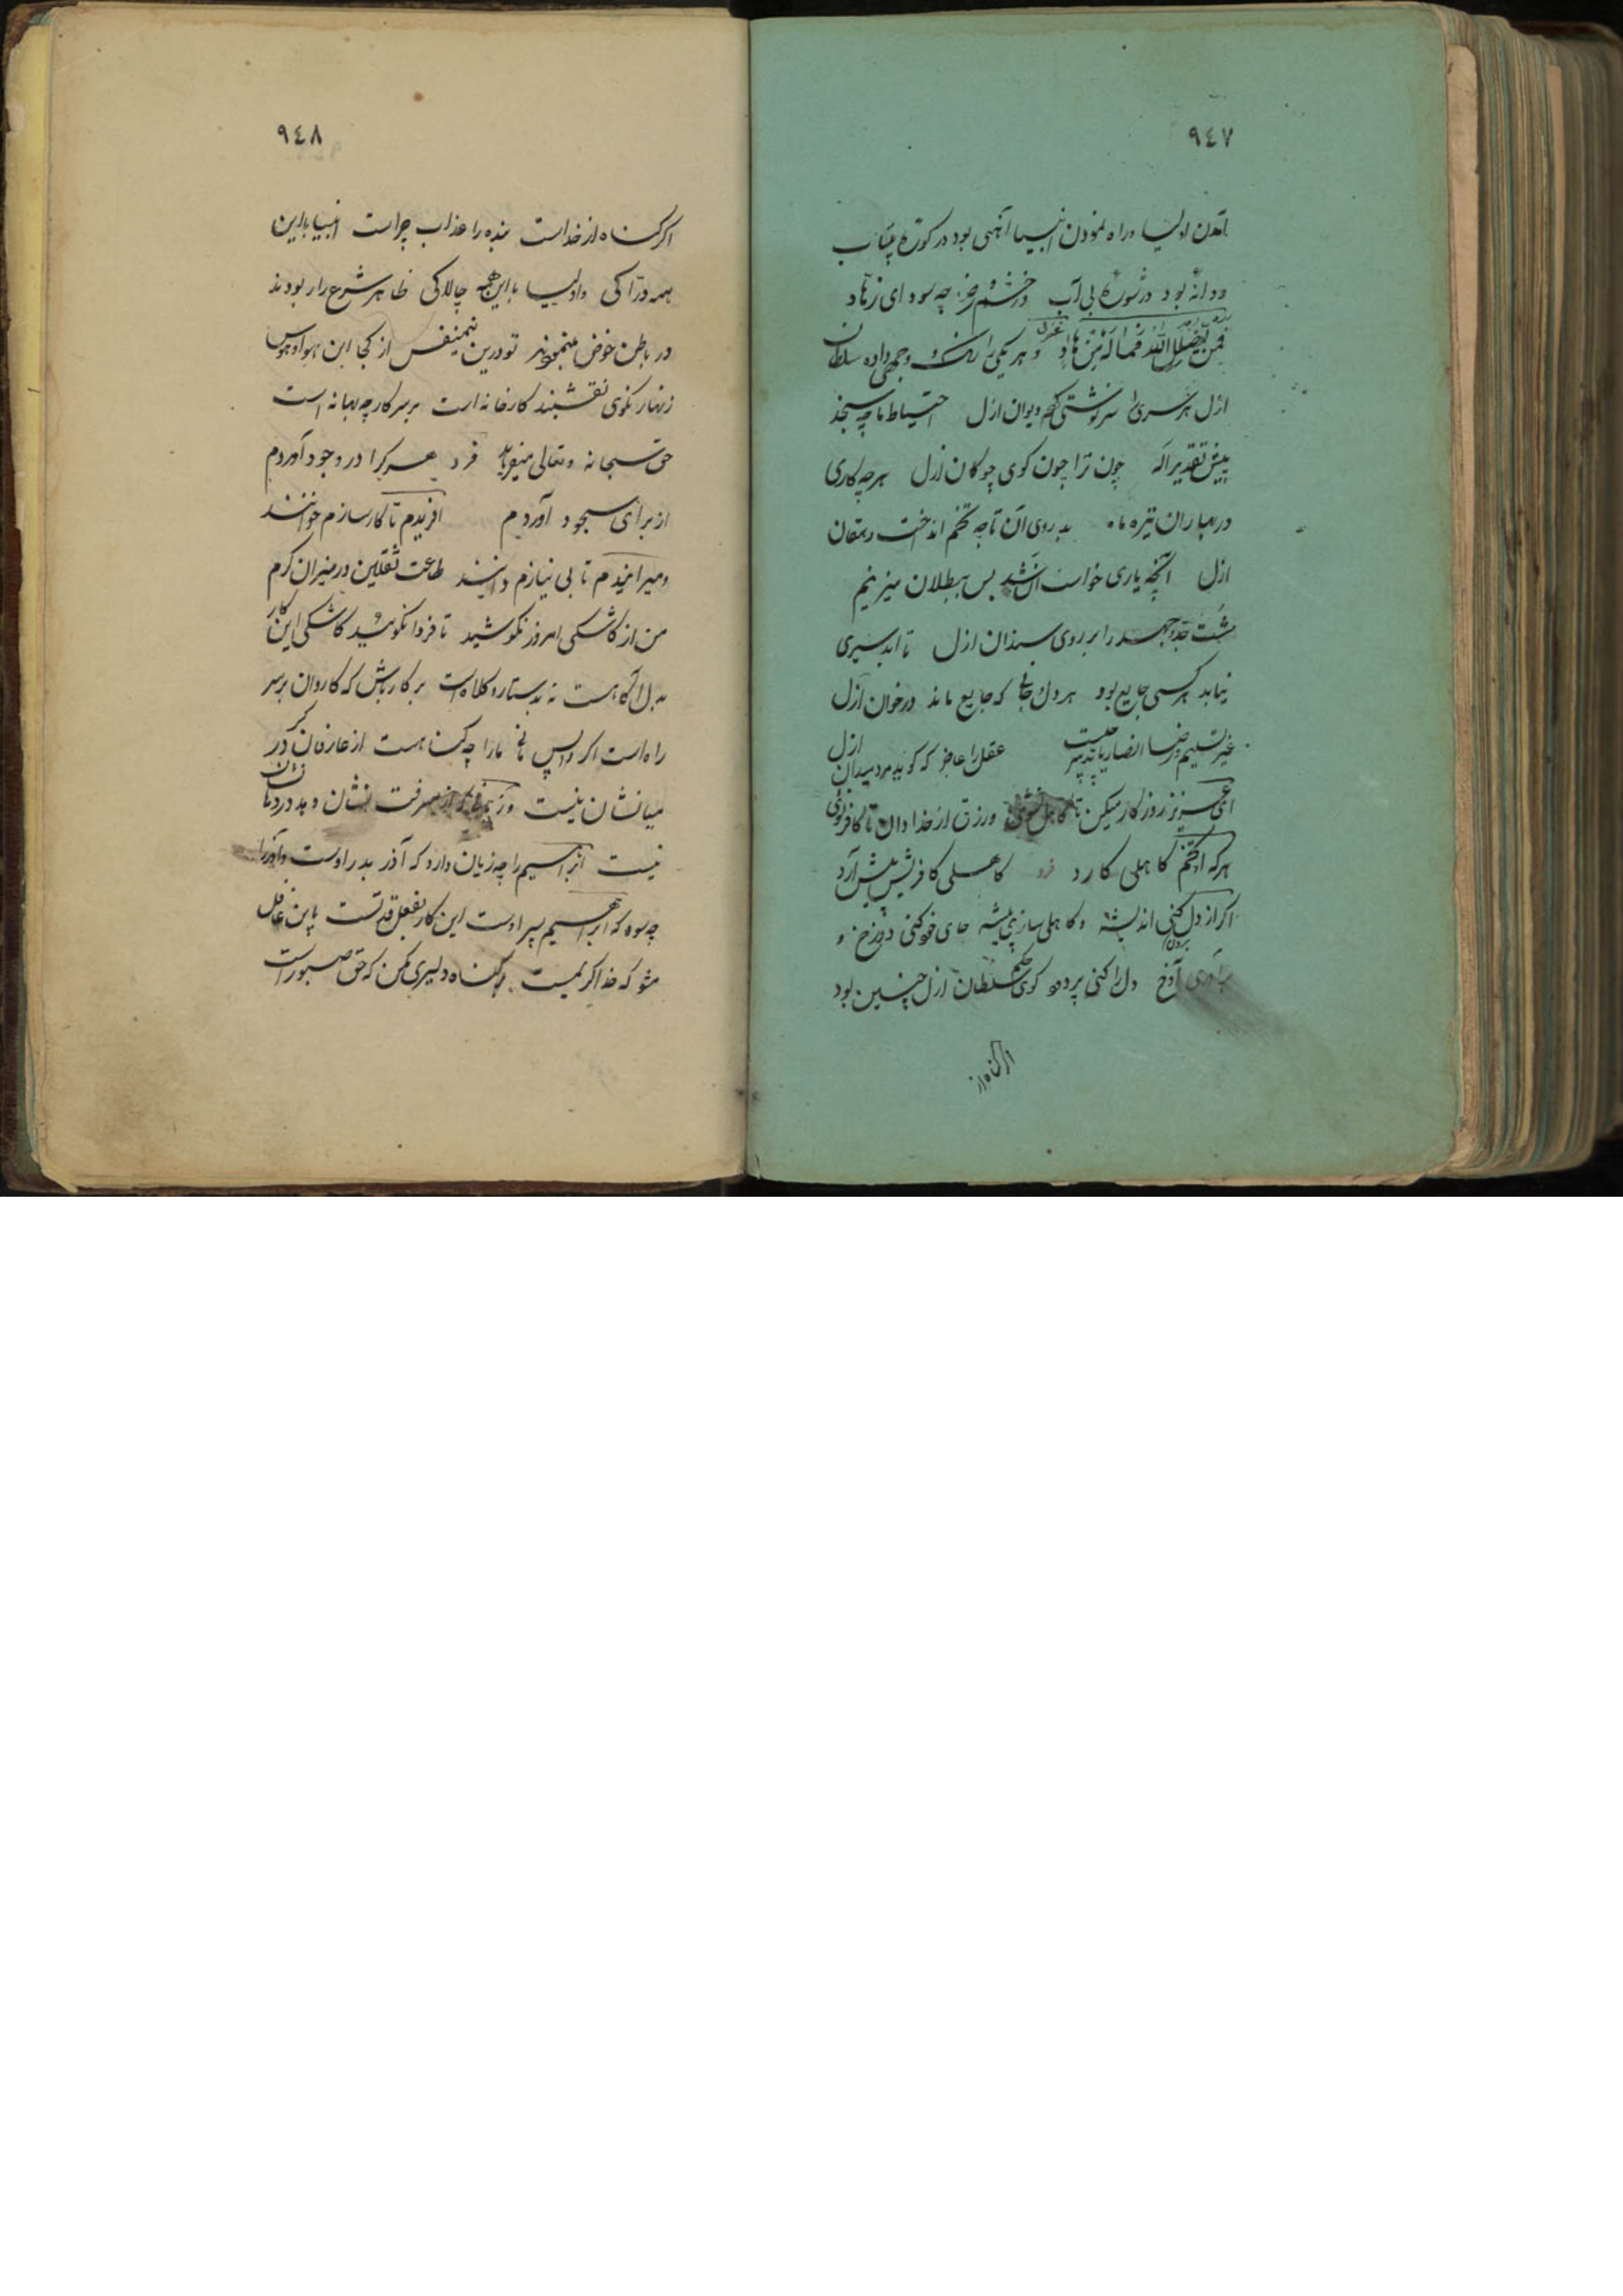 ٩٤٧
آمدن اولیا و راه نمودن انبیا آهنی بود در کورهٔ پیتاب
و دانهٔ بود در شورهٔ بی آب در خشم و رضا چه سود ای زهاد
فمن یضلل الله فما له من هاد غزل و هر یکی را رنگ و جهی داده سلطان
ازل هر سری را سرنوشتی کرده دیوان ازل احتیاط ما چه سنجد
پیش تقدیر اله چون ترا چون کوی چوکان ازل هر چه کاری
در بهاران تیره ماه بدروی آن تا چه تخم انداخت دهقان
ازل آنچه یاری خواست آن شد پس ببطلان میزنیم
مشت جد و جهد را بر روی سندان ازل تا ابد سیری
نیابد هر کسی جایع بود هر دل جانی که جایع ماند در خوان ازل
غیر تسلیم و رضا انصاریا تدبیر چیست عقل را عاجز که کوید مرد میدان ازل
ای عزیز روزکار میکن تا کاهل نشوی و رزق از خدا دان تا کافر نشوی
هر که او تخم کاهلی کارد فرد کاهلی کافریش پیش آرد
اکر از دل کنی اندیشه و کاهلی سازی پیشه جای خود کنی دوزخ و
برآوری آوخ دل را کنی پر درد کوی حکم سلطان ازل چنین بود
اکر کناه از
٩٤٨
اکر کناه از خداست بنده را عذاب چراست انبیا با این
همه درّاکی و اولیا با این همه چالاکی ظاهر شرع را ربودند
در باطن خوض ننمودند تو درین نیم نفس از کجا این هوا و هوس
زنهار نکوی نقشبند کارخانه است بر سر کار چه بهانه است
حق سبحانه و تعالی میفرماید فرد هر کرا در وجود آوردم
از برای سجود آوردم آفریدم تا کارسازم خوانند
و میرانیدم تا بی نیازم دانند طاعت ثقلین در میزان کرم
من از کاشکی امروز نکوشید تا فردا نکوئید کاشکی این کار
بدل آکاهست نه بدستار و کلاه است بر کار باش که کاروان بر سر
راه است اکر واپس مانی ما را چه کناهست از عارفان کر در
میانشان نیست و ز معرفت نشان و بد در دما نشان
نیست ابراهیم را چه زیان دارد که آذر پدر اوست و آذر را
چه سود که ابراهیم پسر اوست این کار بفعل قدتست باین غافل
مشو که خدا کریمست بر کناه دلیری مکن که حق صبور است